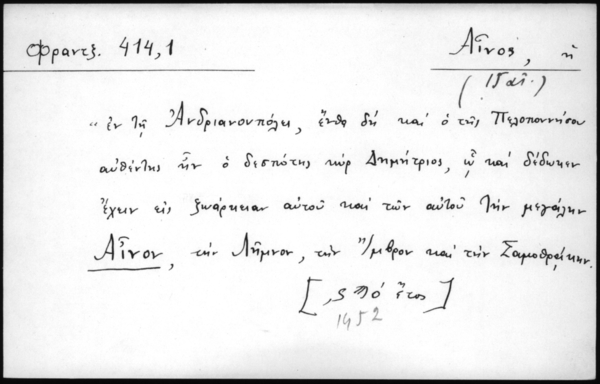 Φραντζ. 414,1
Αἶνος, ἡ
(15 αἰ.)
"ἐν τῇ Ἀνδριανουπόλει, ἔνθα δὴ καὶ ὁ τῆς Πελοποννήσου
αὐθέντης ἦν ὁ δεσπότης κὺρ Δημήτριος, ᾧ καὶ δέδωκεν
ἔχειν εἰς ζωάρκειαν αὐτοῦ καὶ τῶν αὐτοῦ τὴν μεγάλην
Αἶνον, τὴν Λῆμνον, τὴν Ἴμβρον καὶ τὴν Σαμοθράκην.
[ ἔτος]
1452